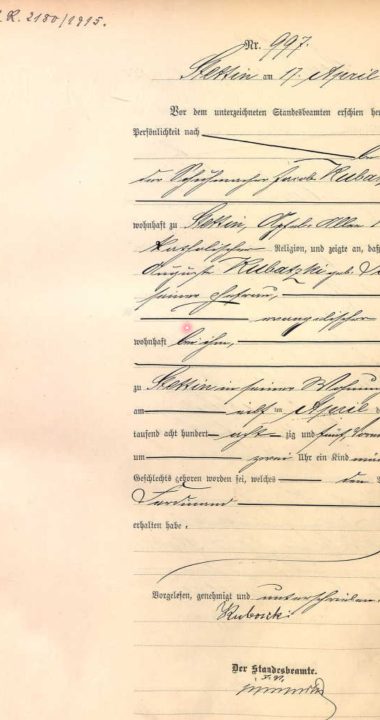 R. 2180/1915.
Nr. 997.
Stettin am 17. April
Vor dem unterzeneten Standesbeamten erschien
Persönlichkeit nach
der Schuhmacher Jacob Kubatz
wohnhaft zu Stettin, Apfel-Allee
katholischer Religion, und zeigte an, daß
Auguste Kubatzki geb.
seiner Ehefrau,
evangelischer
wohnhaft bei ihm,
zu Stettin in seiner Wohnung
am elften April
tausend acht hundert acht zig und fünf, Vorm
um zwei Uhr ein Kind män
Geschlechts geboren worden sei, welches den
Ferdinand
erhalten habe.
Vorgelesen, genehmigt und unterschrieben
Kubacki
Der Standesbeamte.